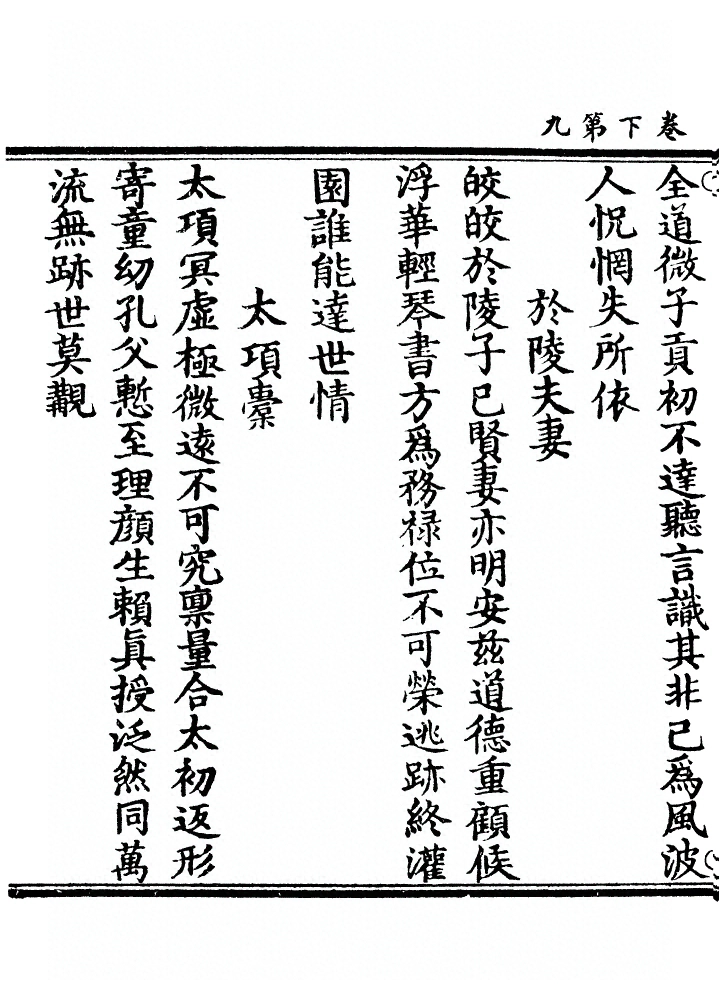 卷下第九
全道微子貢初不達聽言識其非已爲風波
人怳惘失所依
於陵夫妻
皎皎於陵子已賢妻亦明安茲道德重顧候
浮華輕琴書方爲務祿位不可榮逃跡終灌
園誰能達世情
太項橐
太項冥虛極微遠不可究稟量合太初返形
寄童幼孔父慙至理顔生賴眞授泛然同萬
流無跡世莫覯